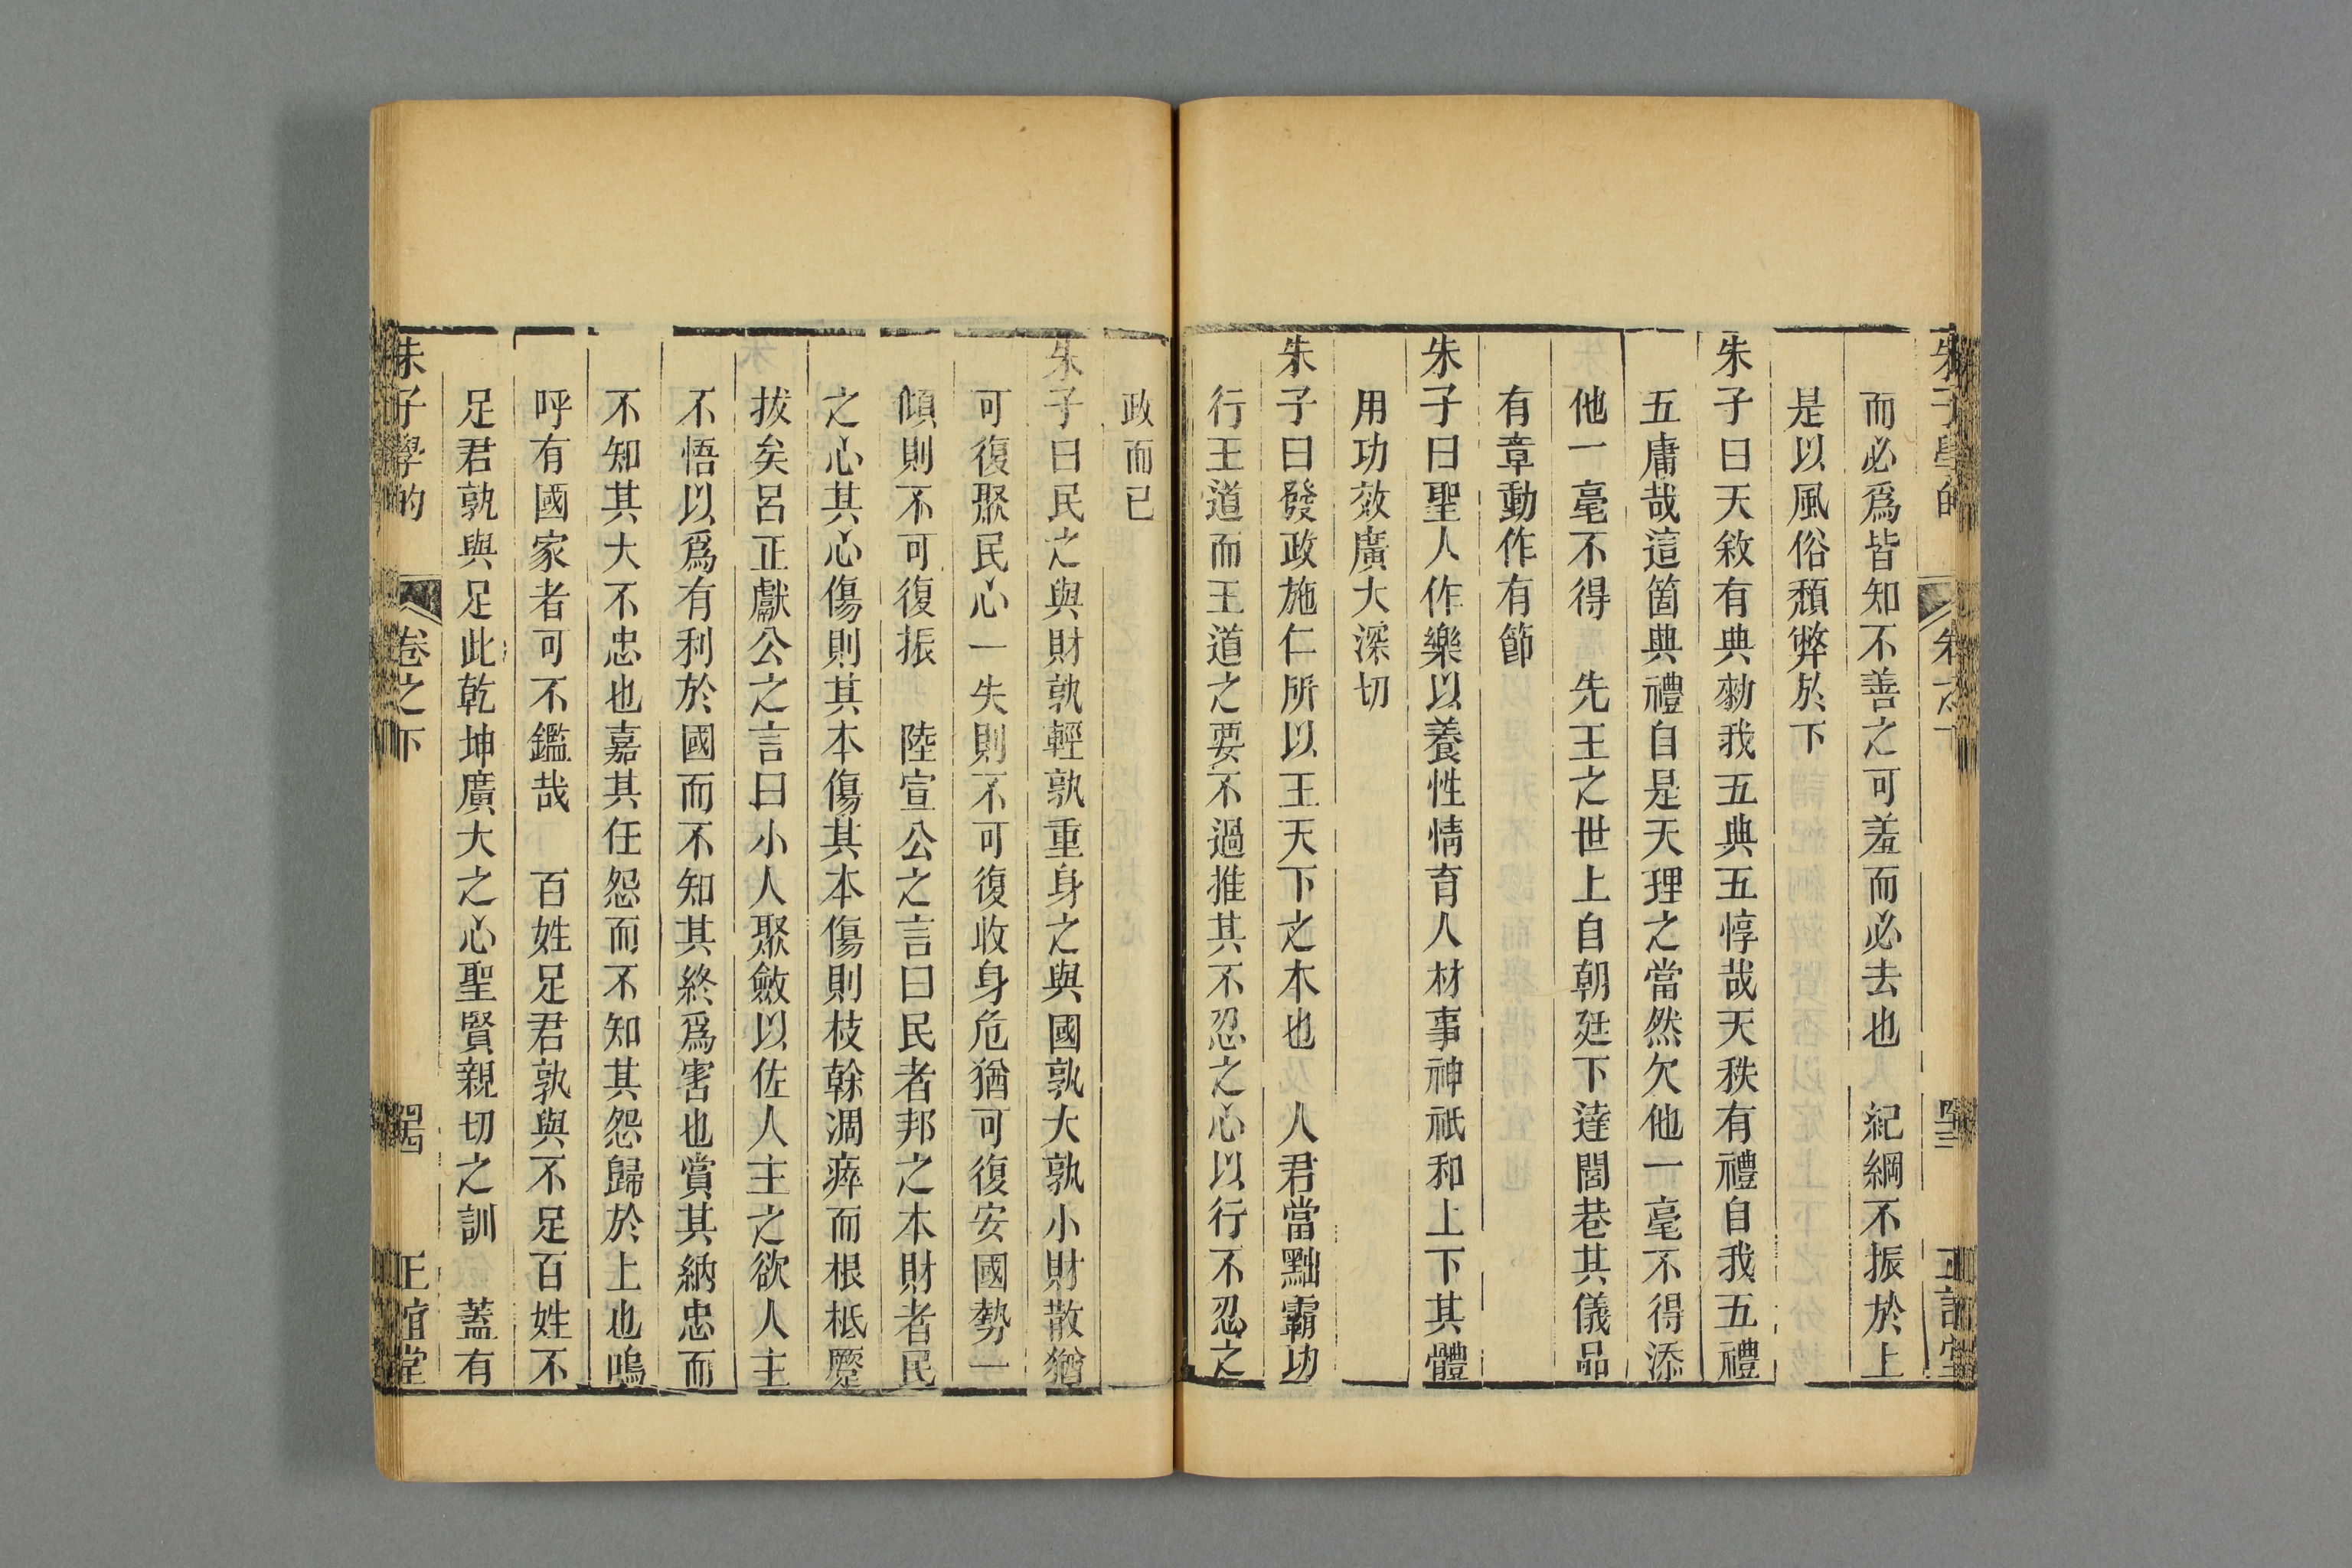 朱子學的 卷之下 四十三 正誼堂
而必爲皆知不善之可羞而必去也 紀綱不振於上
是以風俗頹弊於下
朱子曰天敘有典勑我五典五惇哉天秩有禮自我五禮
五庸哉這箇典禮自是天理之當然欠他一毫不得添
他一毫不得 先王之世上自朝廷下達閭巷其儀品
有章動作有節
朱子曰聖人作樂以養性情育人材事神祇和上下其體
用功效廣大深切
朱子曰發政施仁所以王天下之本也 人君當黜霸功
行王道而王道之要不過推其不忍之心以行不忍之
政而已
朱子曰民之與財孰輕孰重身之與國孰大孰小財散猶
可復聚民心一失則不可復收身危猶可復安國勢一
傾則不可復振 陸宣公之言曰民者邦之本財者民
之心其心傷則其本傷其本傷則枝幹凋瘁而根柢蹷
拔矣呂正獻公之言曰小人聚斂以佐人主之欲人主
不悟以爲有利於國而不知其終爲害也賞其納忠而
不知其大不忠也嘉其任怨而不知其怨歸於上也嗚
呼有國家者可不鑑哉 百姓足君孰與不足百姓不
足君孰與足此乾坤廣大之心聖賢親切之訓 蓋有
朱子學的 卷之下 四十四 正誼堂